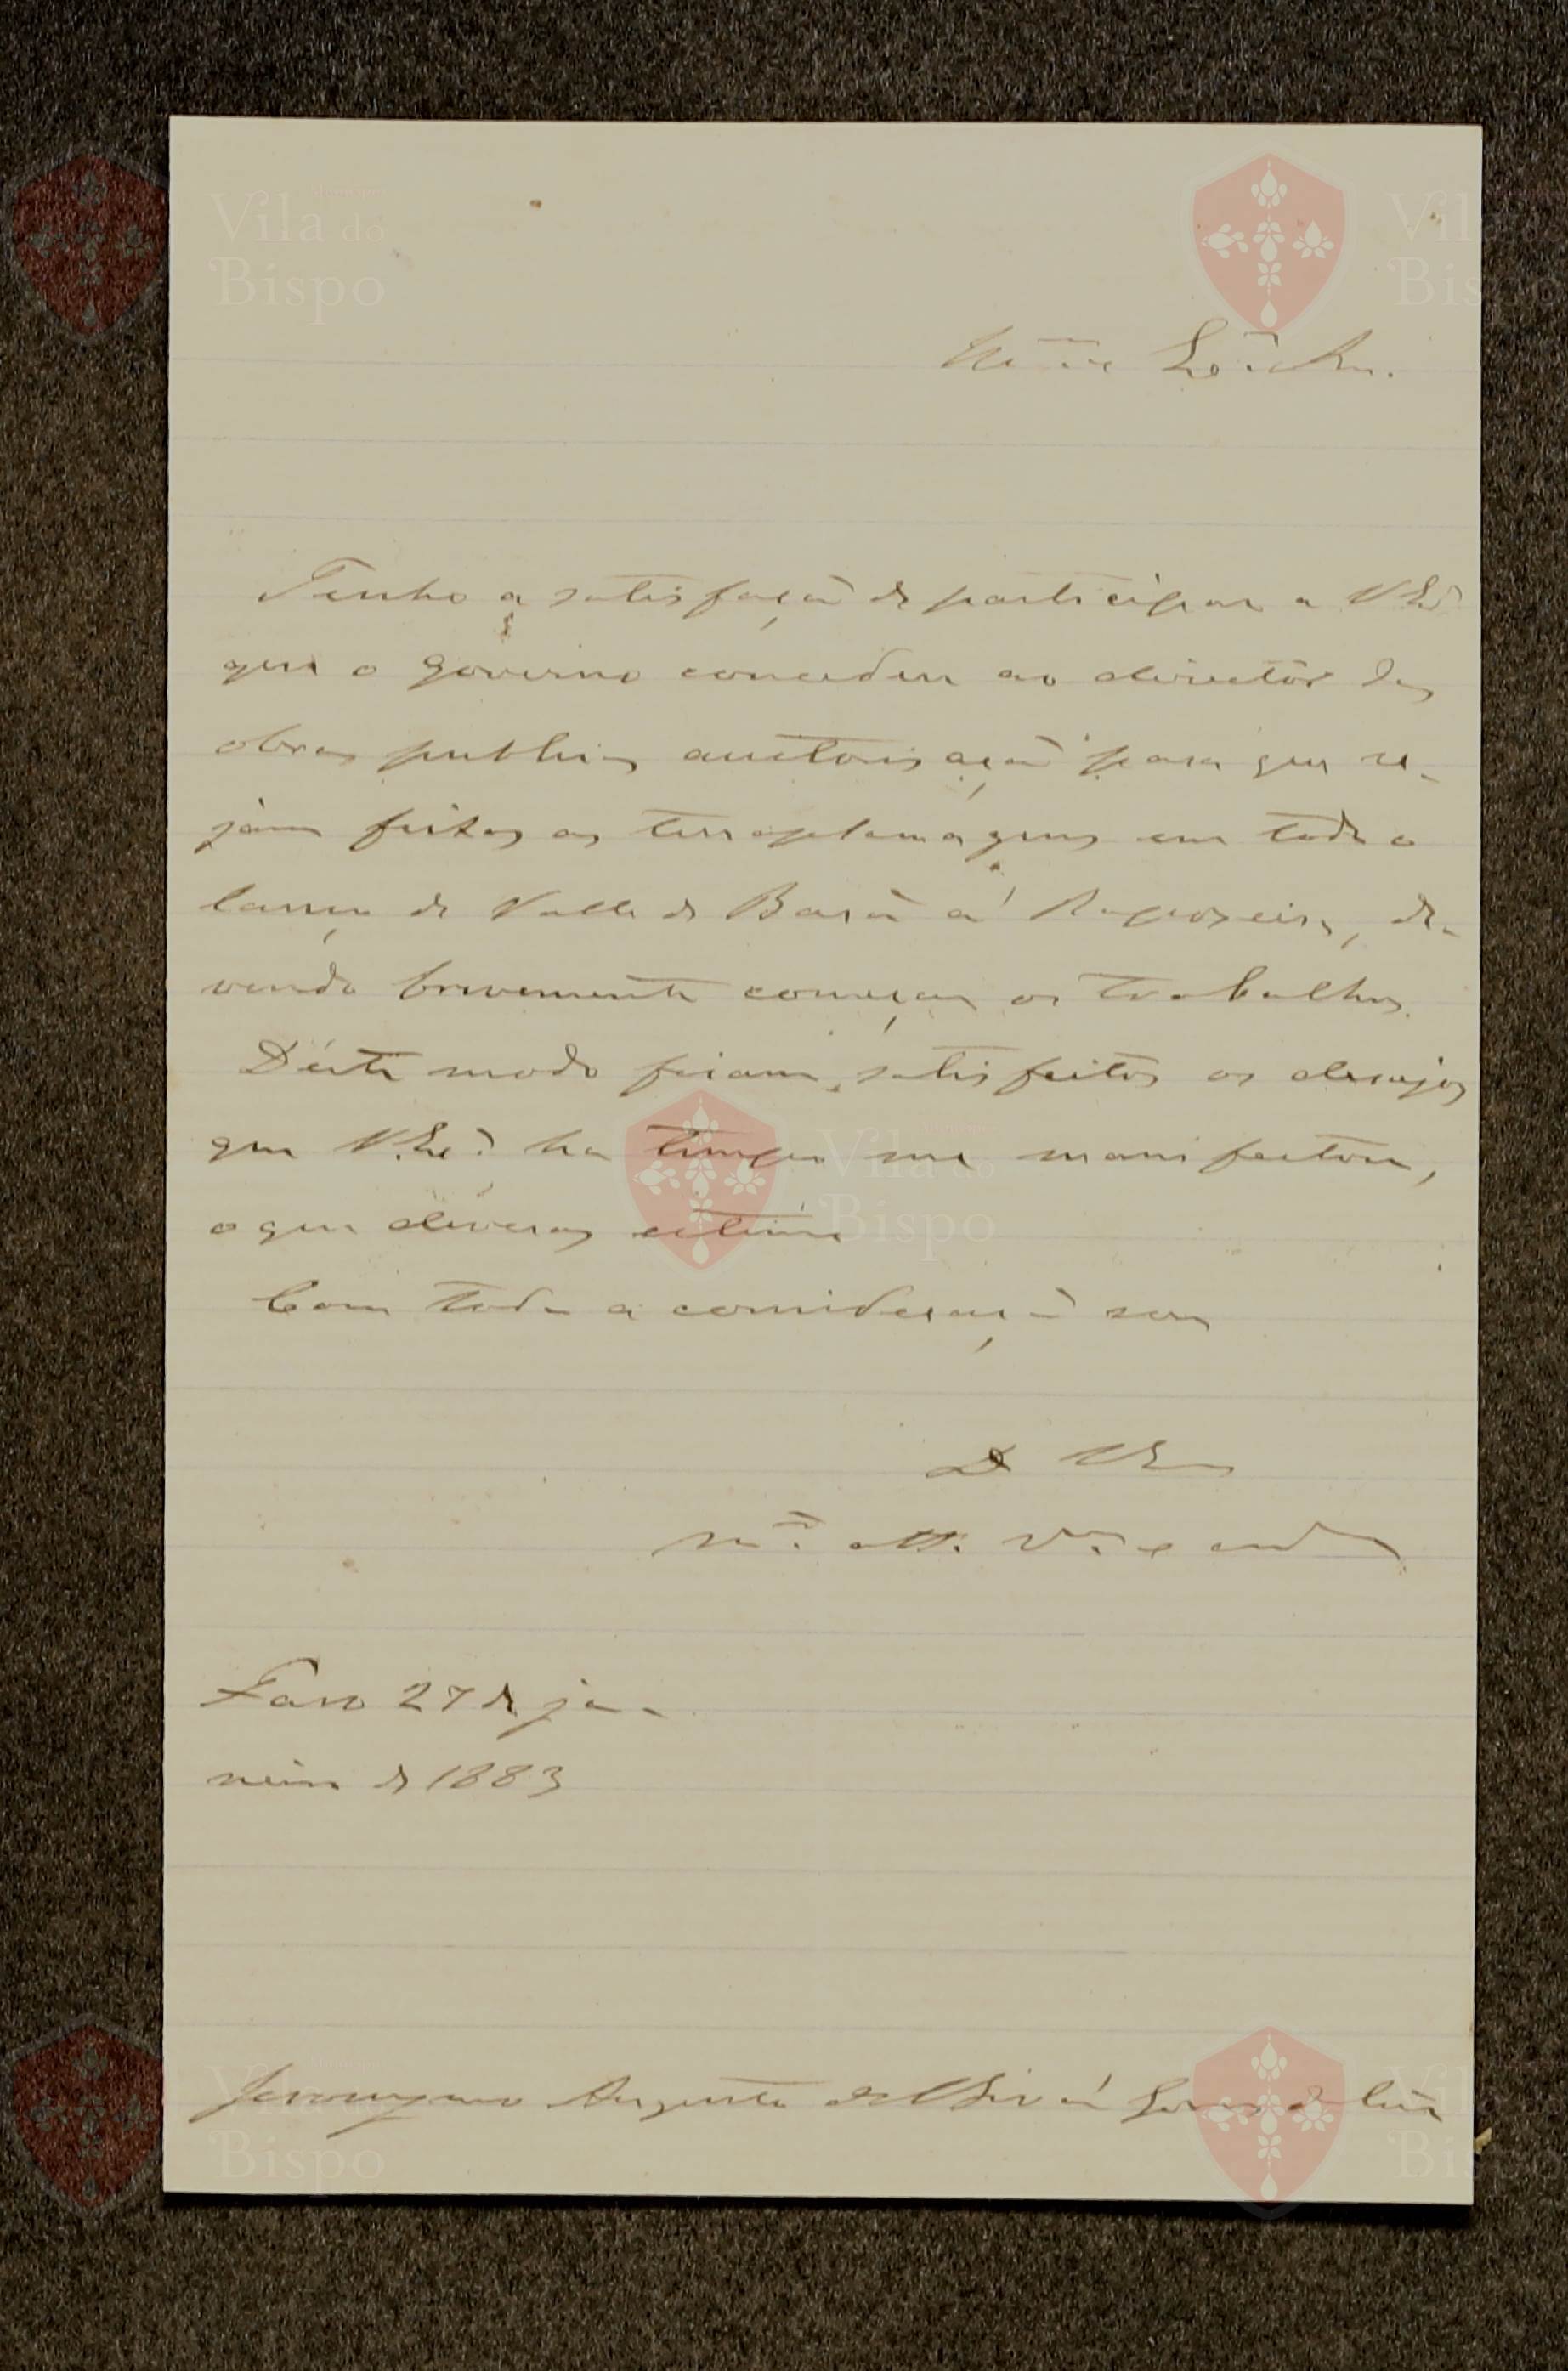 Ill.mo e Ex.mo Sr.
Tenho a satisfação de participar a V Ex.a
que o governo concedeu ao director das
obras publicas auctorisação para que se-
jam feitas as terraplanagens em todo o
lanço de Valle de Barão á Raposeira, de-
vendo brevemente começar os trabalhos.
D'esta modo ficam satisfeitos os desejos
que V. Ex.a ha tempo me manifestou,
o que deveras estimo
Com toda a consideração sou
D V Ex
m.to att. V.or e
Faro 27 de ja-
neiro de 1883
Jeronymo Augusto de
Vila do
Bispo
Vila do
Bispo
Bispo